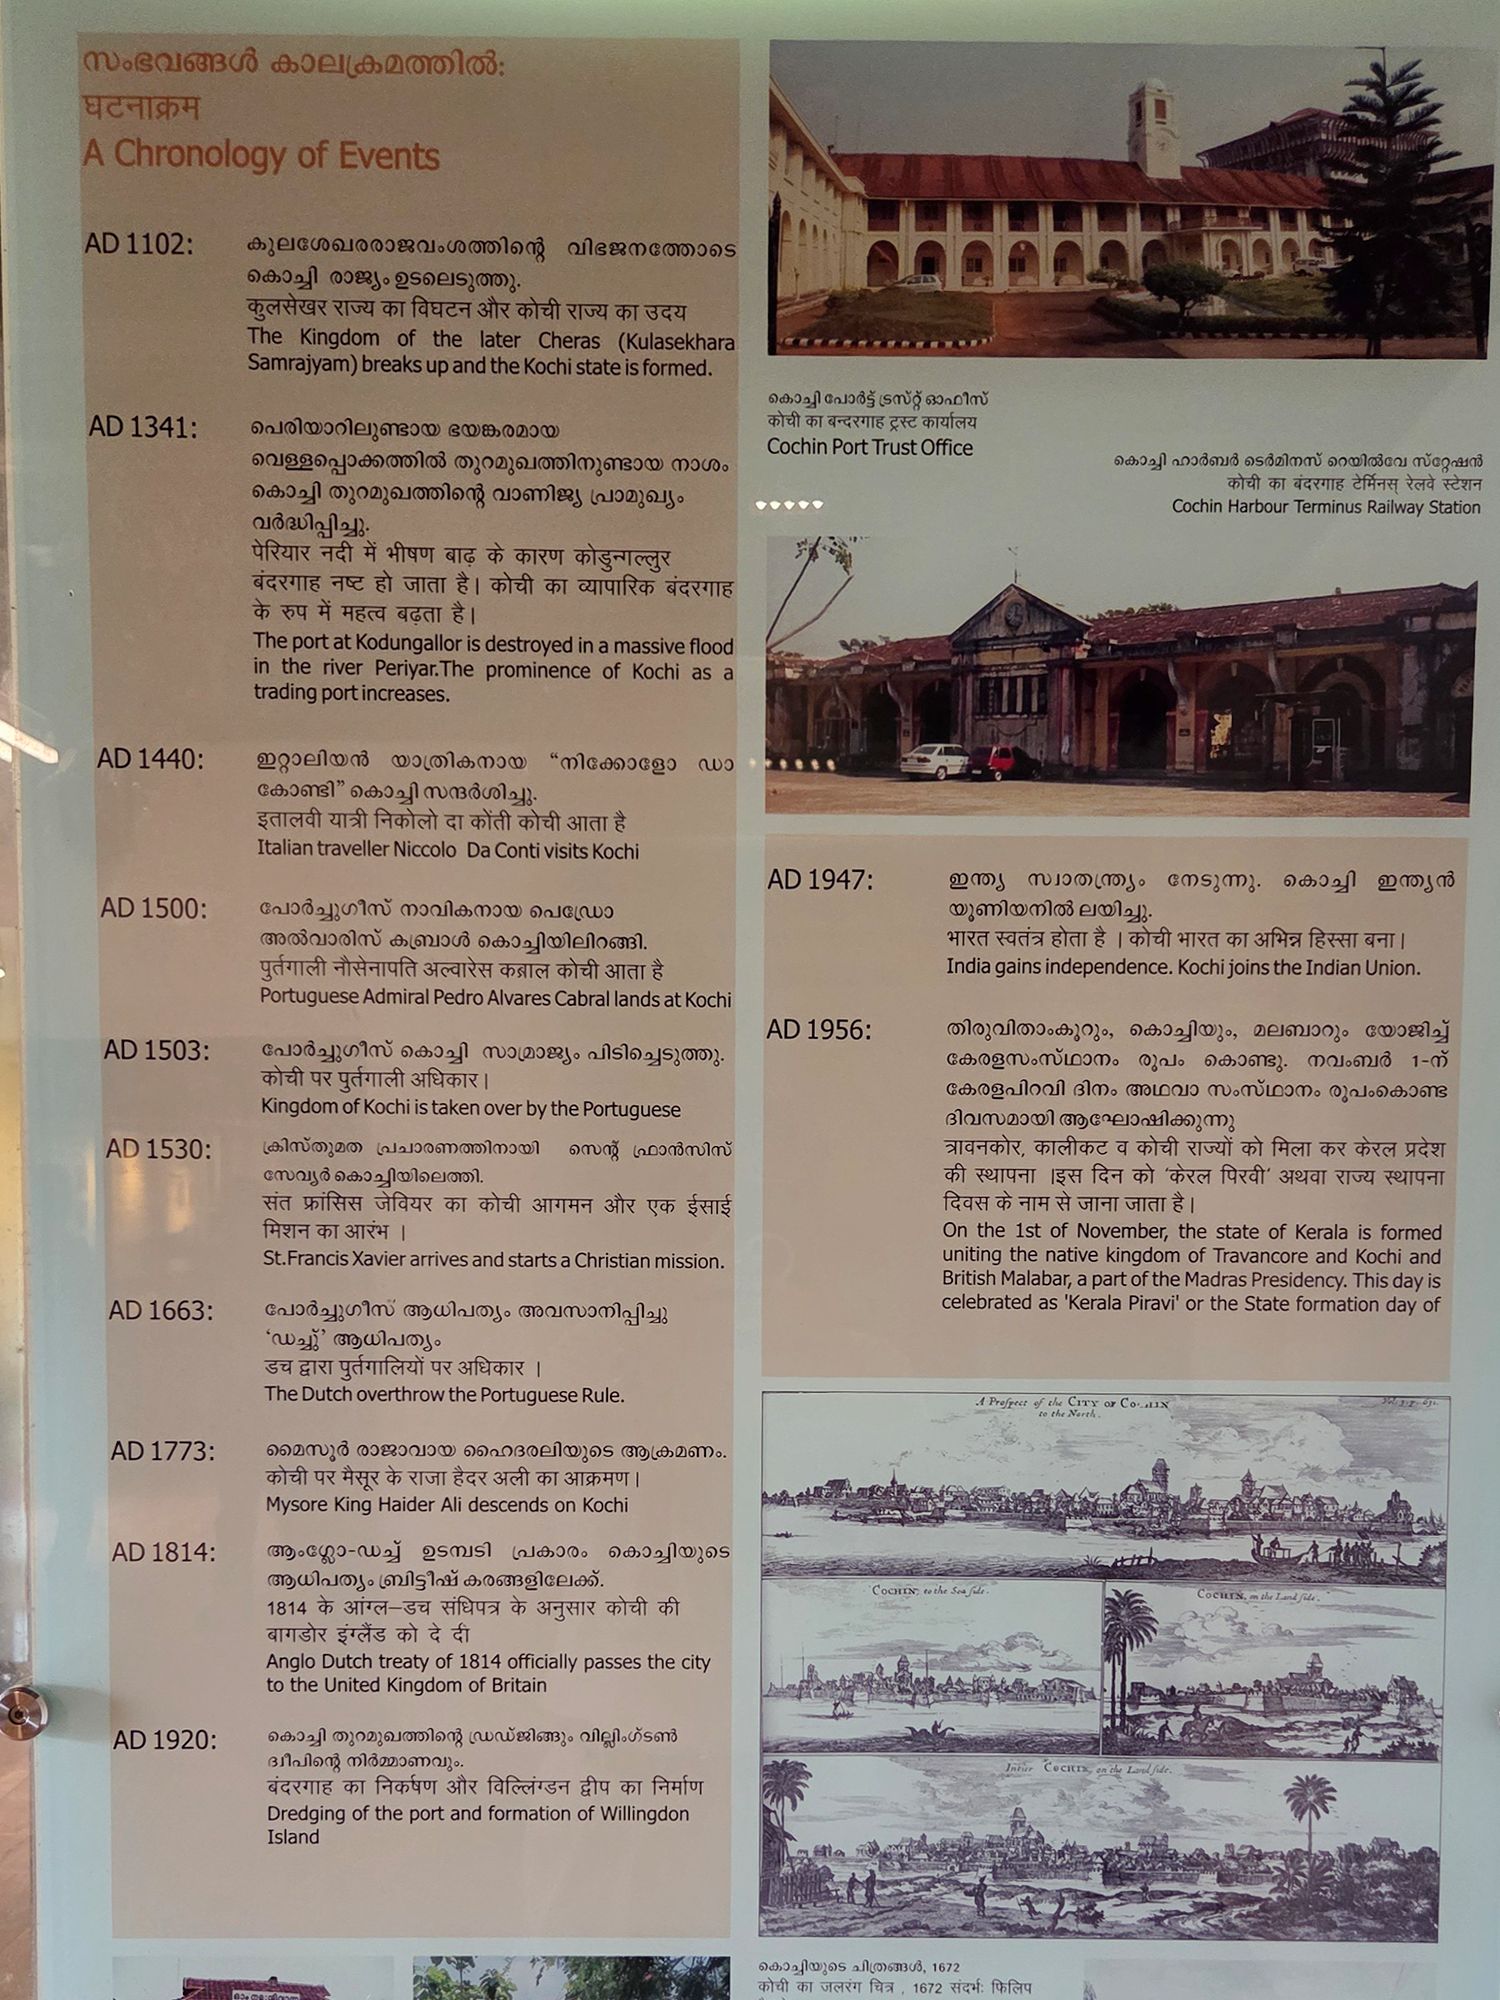 സംഭവങ്ങൾ കാലക്രമത്തിൽ:
घटनाक्रम
A Chronology of Events
AD 1102:
കുലശേഖരരാജവംശത്തിന്റെ വിഭജനത്തോടെ
കൊച്ചി രാജ്യം ഉടലെടുത്തു.
कुलसेखर राज्य का विघटन और कोची राज्य का उदय
The Kingdom of the later Cheras (Kulasekhara
Samrajyam) breaks up and the Kochi state is formed.
AD 1341:
പെരിയാറിലുണ്ടായ ഭയങ്കരമായ
വെള്ളപ്പൊക്കത്തിൽ തുറമുഖത്തിനുണ്ടായ നാശം
കൊച്ചി തുറമുഖത്തിന്റെ വാണിജ്യ പ്രാമുഖ്യം
വർദ്ധിപ്പിച്ചു.
पेरियार नदी में भीषण बाढ़ के कारण कोडुन्गल्लुर
बंदरगाह नष्ट हो जाता है। कोची का व्यापारिक बंदरगाह
के रुप में महत्व बढ़ता है।
The port at Kodungallor is destroyed in a massive flood
in the river Periyar.The prominence of Kochi as a
trading port increases.
AD 1440:
ഇറ്റാലിയൻ യാത്രികനായ "നിക്കോളോ ഡാ
കോണ്ടി" കൊച്ചി സന്ദർശിച്ചു.
इतालवी यात्री निकोलो दा कोंती कोची आता है
Italian traveller Niccolo Da Conti visits Kochi
AD 1500:
പോർച്ചുഗീസ് നാവികനായ പെഡ്രോ
അൽവാരിസ് കബ്രാൾ കൊച്ചിയിലിറങ്ങി.
पुर्तगाली नौसेनापति अल्वारेस कब्राल कोची आता है
Portuguese Admiral Pedro Alvares Cabral lands at Kochi
AD 1503:
പോർച്ചുഗീസ് കൊച്ചി സാമ്രാജ്യം പിടിച്ചെടുത്തു.
कोची पर पुर्तगाली अधिकार।
Kingdom of Kochi is taken over by the Portuguese
AD 1530:
ക്രിസ്തുമത പ്രചാരണത്തിനായി സെന്റ് ഫ്രാൻസിസ്
സേവ്യർ കൊച്ചിയിലെത്തി.
संत फ्रांसिस जेवियर का कोची आगमन और एक ईसाई
मिशन का आरंभ ।
St.Francis Xavier arrives and starts a Christian mission.
AD 1663:
പോർച്ചുഗീസ് ആധിപത്യം അവസാനിപ്പിച്ചു
'ഡച്ചു്' ആധിപത്യം
डच द्वारा पुर्तगालियों पर अधिकार ।
The Dutch overthrow the Portuguese Rule.
AD 1773:
മൈസൂർ രാജാവായ ഹൈദരലിയുടെ ആക്രമണം.
कोची पर मैसूर के राजा हैदर अली का आक्रमण।
Mysore King Haider Ali descends on Kochi
AD 1814:
ആംഗ്ലോ-ഡച്ച് ഉടമ്പടി പ്രകാരം കൊച്ചിയുടെ
ആധിപത്യം ബ്രിട്ടീഷ് കരങ്ങളിലേക്ക്.
1814 के आंग्ल–डच संधिपत्र के अनुसार कोची की
बागडोर इंग्लैंड को दे दी
Anglo Dutch treaty of 1814 officially passes the city
to the United Kingdom of Britain
AD 1920:
കൊച്ചി തുറമുഖത്തിന്റെ ഡ്രഡ്ജിങ്ങും വില്ലിംഗ്ടൺ
ദ്വീപിന്റെ നിർമ്മാണവും.
बंदरगाह का निकर्षण और विल्लिंग्डन द्वीप का निर्माण
Dredging of the port and formation of Willingdon
Island
കൊച്ചി പോർട്ട് ട്രസ്റ്റ് ഓഫീസ്
कोची का बन्दरगाह ट्रस्ट कार्यालय
Cochin Port Trust Office
കൊച്ചി ഹാർബർ ടെർമിനസ് റെയിൽവേ സ്റ്റേഷൻ
कोची का बंदरगाह टेर्मिनस् रेलवे स्टेशन
Cochin Harbour Terminus Railway Station
AD 1947:
ഇന്ത്യ സ്വാതന്ത്ര്യം നേടുന്നു. കൊച്ചി ഇന്ത്യൻ
യൂണിയനിൽ ലയിച്ചു.
भारत स्वतंत्र होता है । कोची भारत का अभिन्न हिस्सा बना।
India gains independence. Kochi joins the Indian Union.
AD 1956:
തിരുവിതാംകൂറും, കൊച്ചിയും, മലബാറും യോജിച്ച്
കേരളസംസ്ഥാനം രൂപം കൊണ്ടു. നവംബർ 1-ന്
കേരളപിറവി ദിനം അഥവാ സംസ്ഥാനം രൂപംകൊണ്ട
ദിവസമായി ആഘോഷിക്കുന്നു
त्रावनकोर, कालीकट व कोची राज्यों को मिला कर केरल प्रदेश
की स्थापना ।इस दिन को 'केरल पिरवी' अथवा राज्य स्थापना
दिवस के नाम से जाना जाता है।
On the 1st of November, the state of Kerala is formed
uniting the native kingdom of Travancore and Kochi and
British Malabar, a part of the Madras Presidency. This day is
celebrated as 'Kerala Piravi' or the State formation day of
A Prospect of the CITY OF
to the North.
COCHIN, to the Sea side.
COCHIN, on the Land side.
Intier COCHIN, on the Land side.
കൊച്ചിയുടെ ചിത്രങ്ങൾ, 1672
कोची का जलरंग चित्र , 1672 संदर्भ: फिलिप